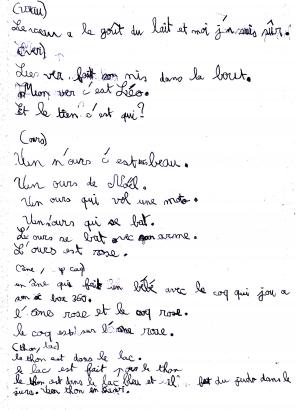 (cœur)
Le cœur a le goût du lait et moi j'en suis sûr.
(ver)
Le ver fait son nis dans la bout.
Mon ver c'est Léo.
Et le tien c'est qui?
(ours)
Un n'ours c'est beau.
Un ours de Noël.
Un ours qui vol une moto.
Un ours qui se bat.
L'ours se bat avec arme.
L'ours est rose.
(âne, coq)
un âne qui fait un bébé avec le coq qui jou a
son box 360.
l'âne rose et le coq rose.
le coq est sur l'âne rose.
(thon, lac)
le thon est dans le lac.
le lac est fait pour le thon
le thon est dans le lac bleu et il fait du judo dans le